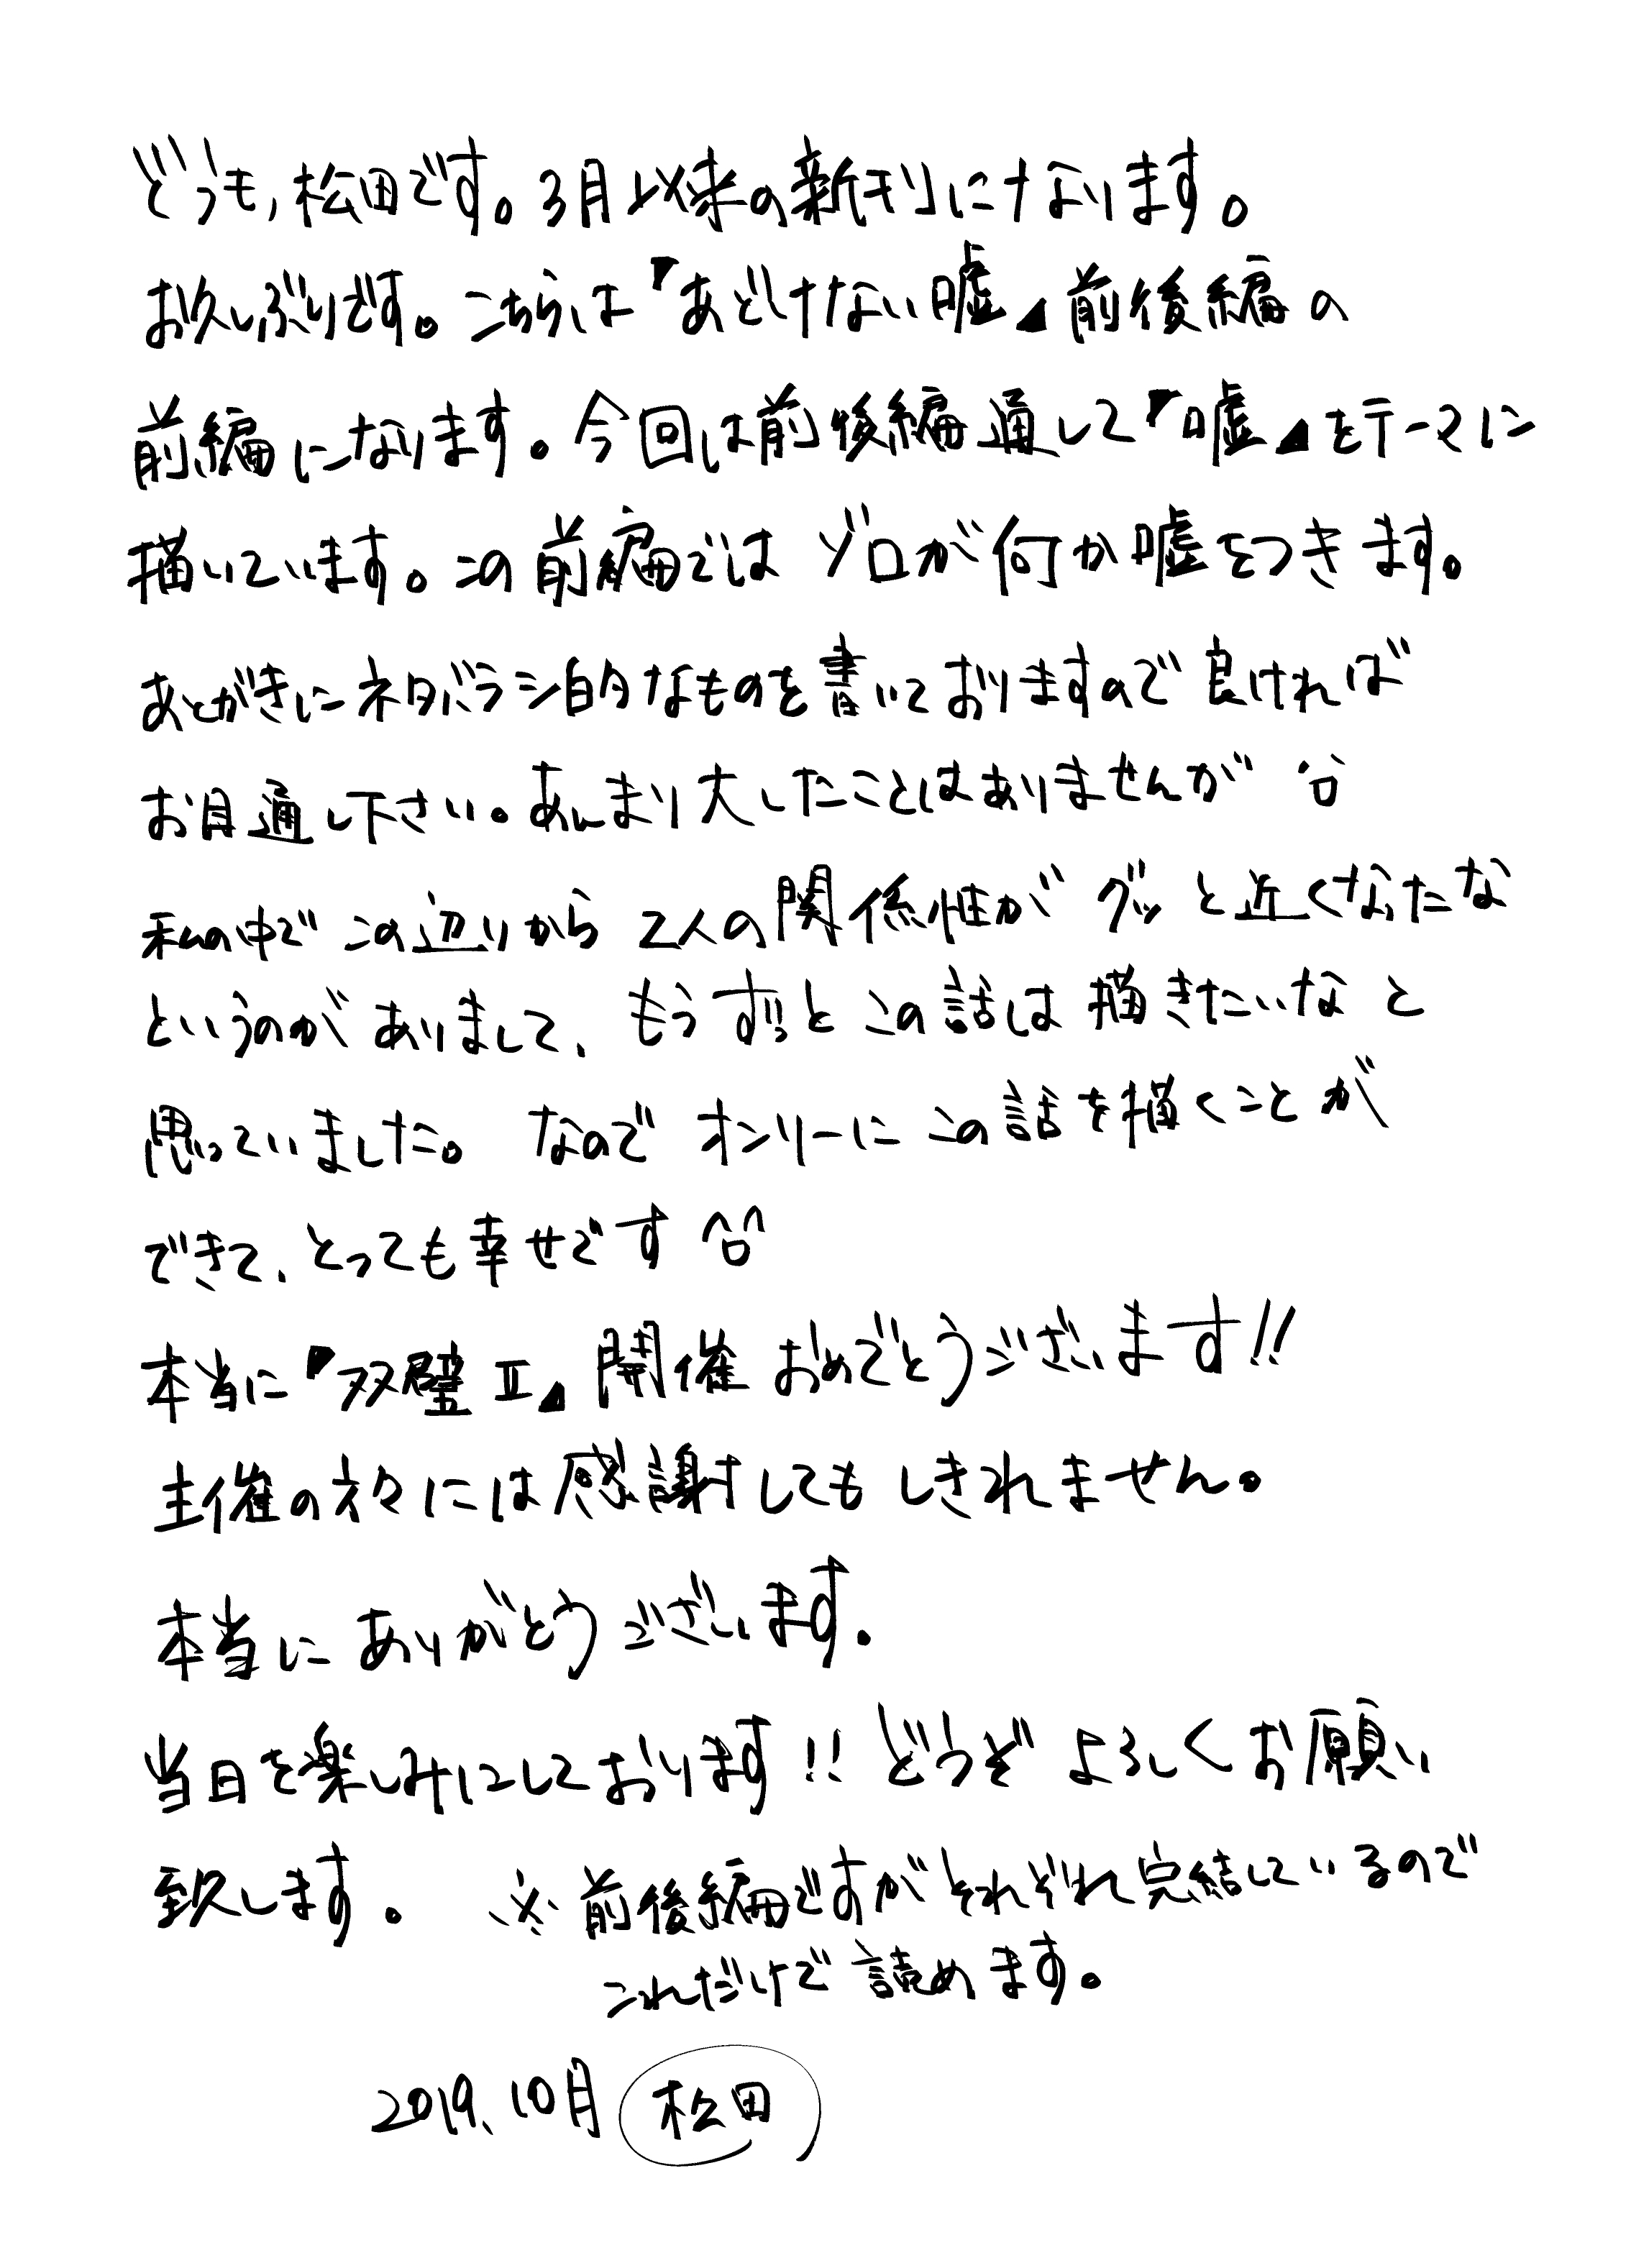 どうも、松田です。3月以来の新刊になります。
お久しぶりです。こちらは『あどけない嘘』前後編の
前編になります。今回は前後編通して『嘘』をテーマに
描いています。この前編では ゾロが何か嘘をつきます。
あとがきにネタバラシ的なものを書いておりますので良ければ
お目通し下さい。あんまり大したことはありませんが
私の中で この辺りから 2人の関係性が グッと近くなったな
というのが ありまして、もうずっと この話は 描きたいなと
思っていました。 なので オンリーに この話を描くことが
できて、とっても幸せです ^ロ^
本当に『双璧Ⅱ』開催 おめでとうございます!!
主催の方々には感謝しても しきれません。
本当に ありがとう ございます.
当日を楽しみにしております!! どうぞ よろしくお願い
致します。 ※前後編ですがそれぞれ完結しているので
これだけで 読めます。
2019.10月 松田